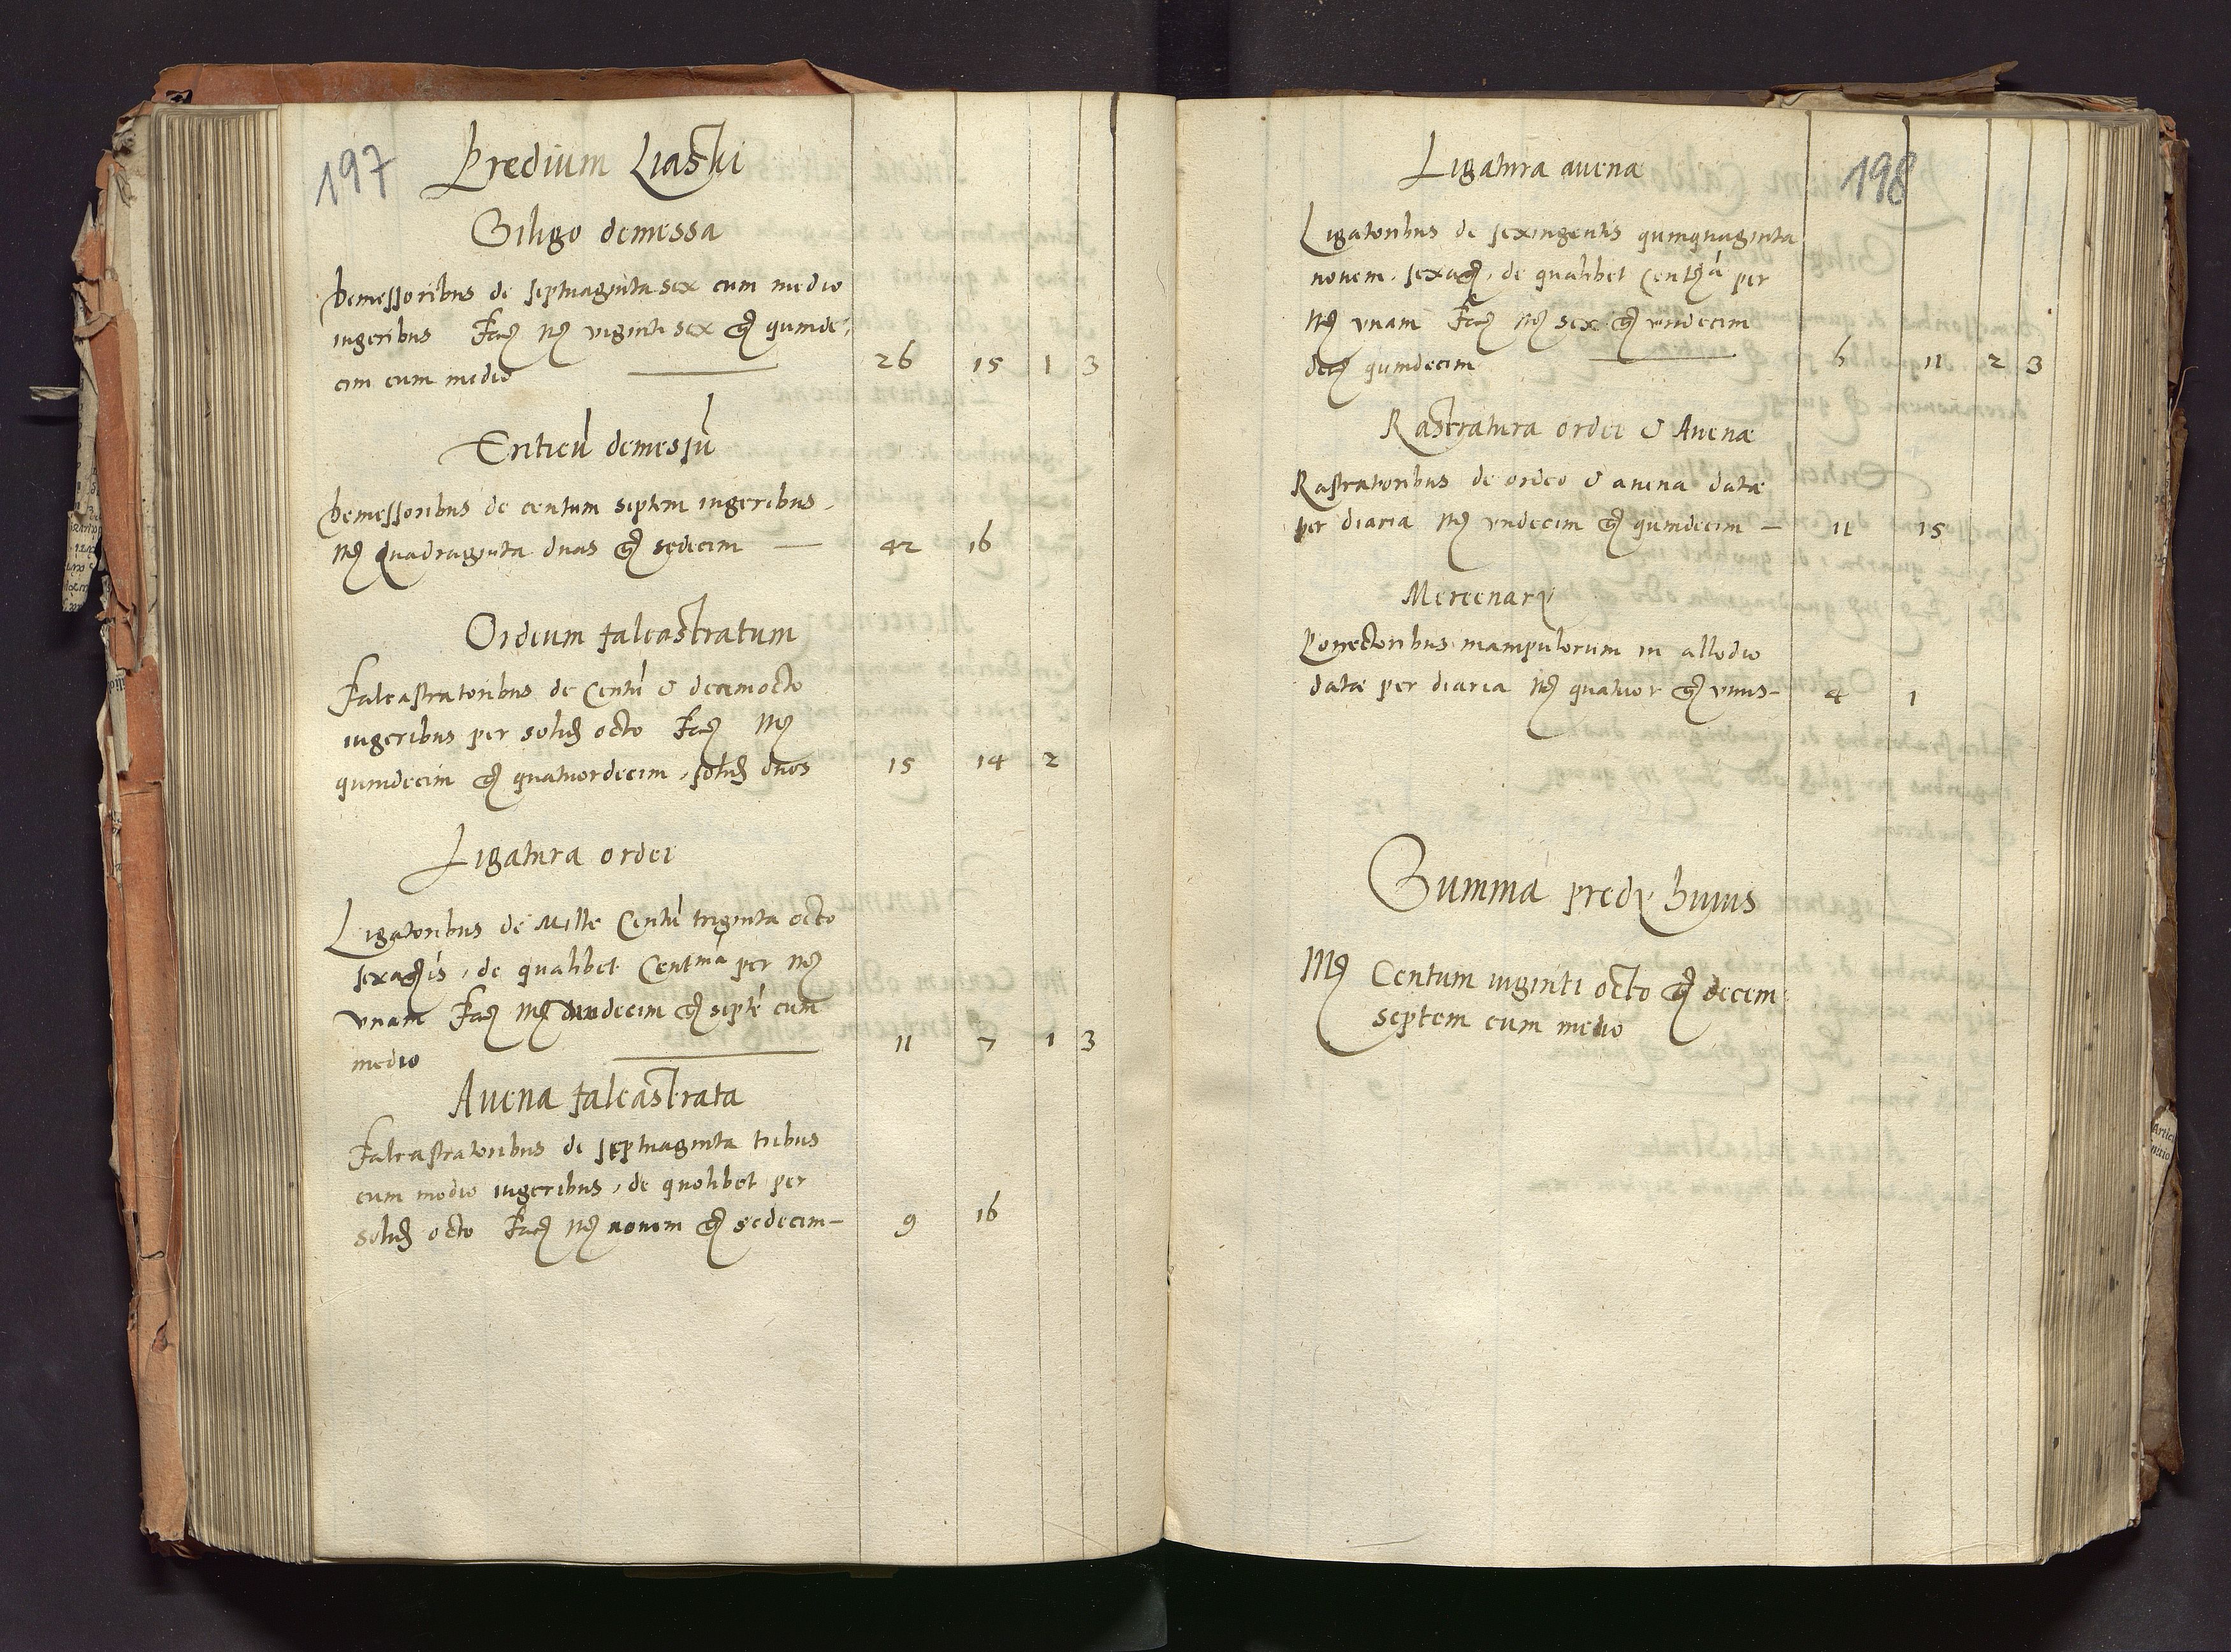 197
Predium Liaski
Siligo demessa
Demessoribus de septuaginta sex cum medio
iugeribus Fac: Mͬ viginti sex gͬ quinde-
cim cum medio 26 15 1 3
Triticũ demessũ
Demessoribus de centum septem iugeribus
Mͬ Quadraginta duas gͬ sedecim — 42 16
Ordeum falcastratum
Falcastratoribus de Centũ & decemocto
iugeribus per solid: octo Fac: Mͬ
quindecim gͬ quatuordecim, solid: duos 15 14 2
Ligatura ordei
Ligatoribus de Mille Centũ triginta octo
sexag:is, de qualibet Centͫᵃ per Mͬ
vnam Fac: Mͬ vndecim gͬ septẽ cum
medio 11 7 1 3
Auena falcastrata
Falcastratoribus de septuaginta tribus
cum medio iugeribus, de quolibet per
solid: octo Fac: Mͬ nouem gͬ sedecim — 9 16
198
Ligatura auenæ
Ligatoribus de sexingentis quinquaginta
nouem sexag:, de qualibet Centͫᵃ per
Mͬ vnam Fac: Mͬ sex gͬ vndecim
den: quindecim 6 11 2 3
Rastratura ordei & Auenæ
Rastratoribus de ordeo & auena datæ
per diaria Mͬ vndecim gͬ quindecim — 11 15
Mercenarÿ
Porrectoribus manipulorum in allodio
datæ per diaria Mͬ quatuor gͬ vnus — 4 1
Summa predÿ huius
Mͬ Centum viginti octo gͬ decem
septem cum medio